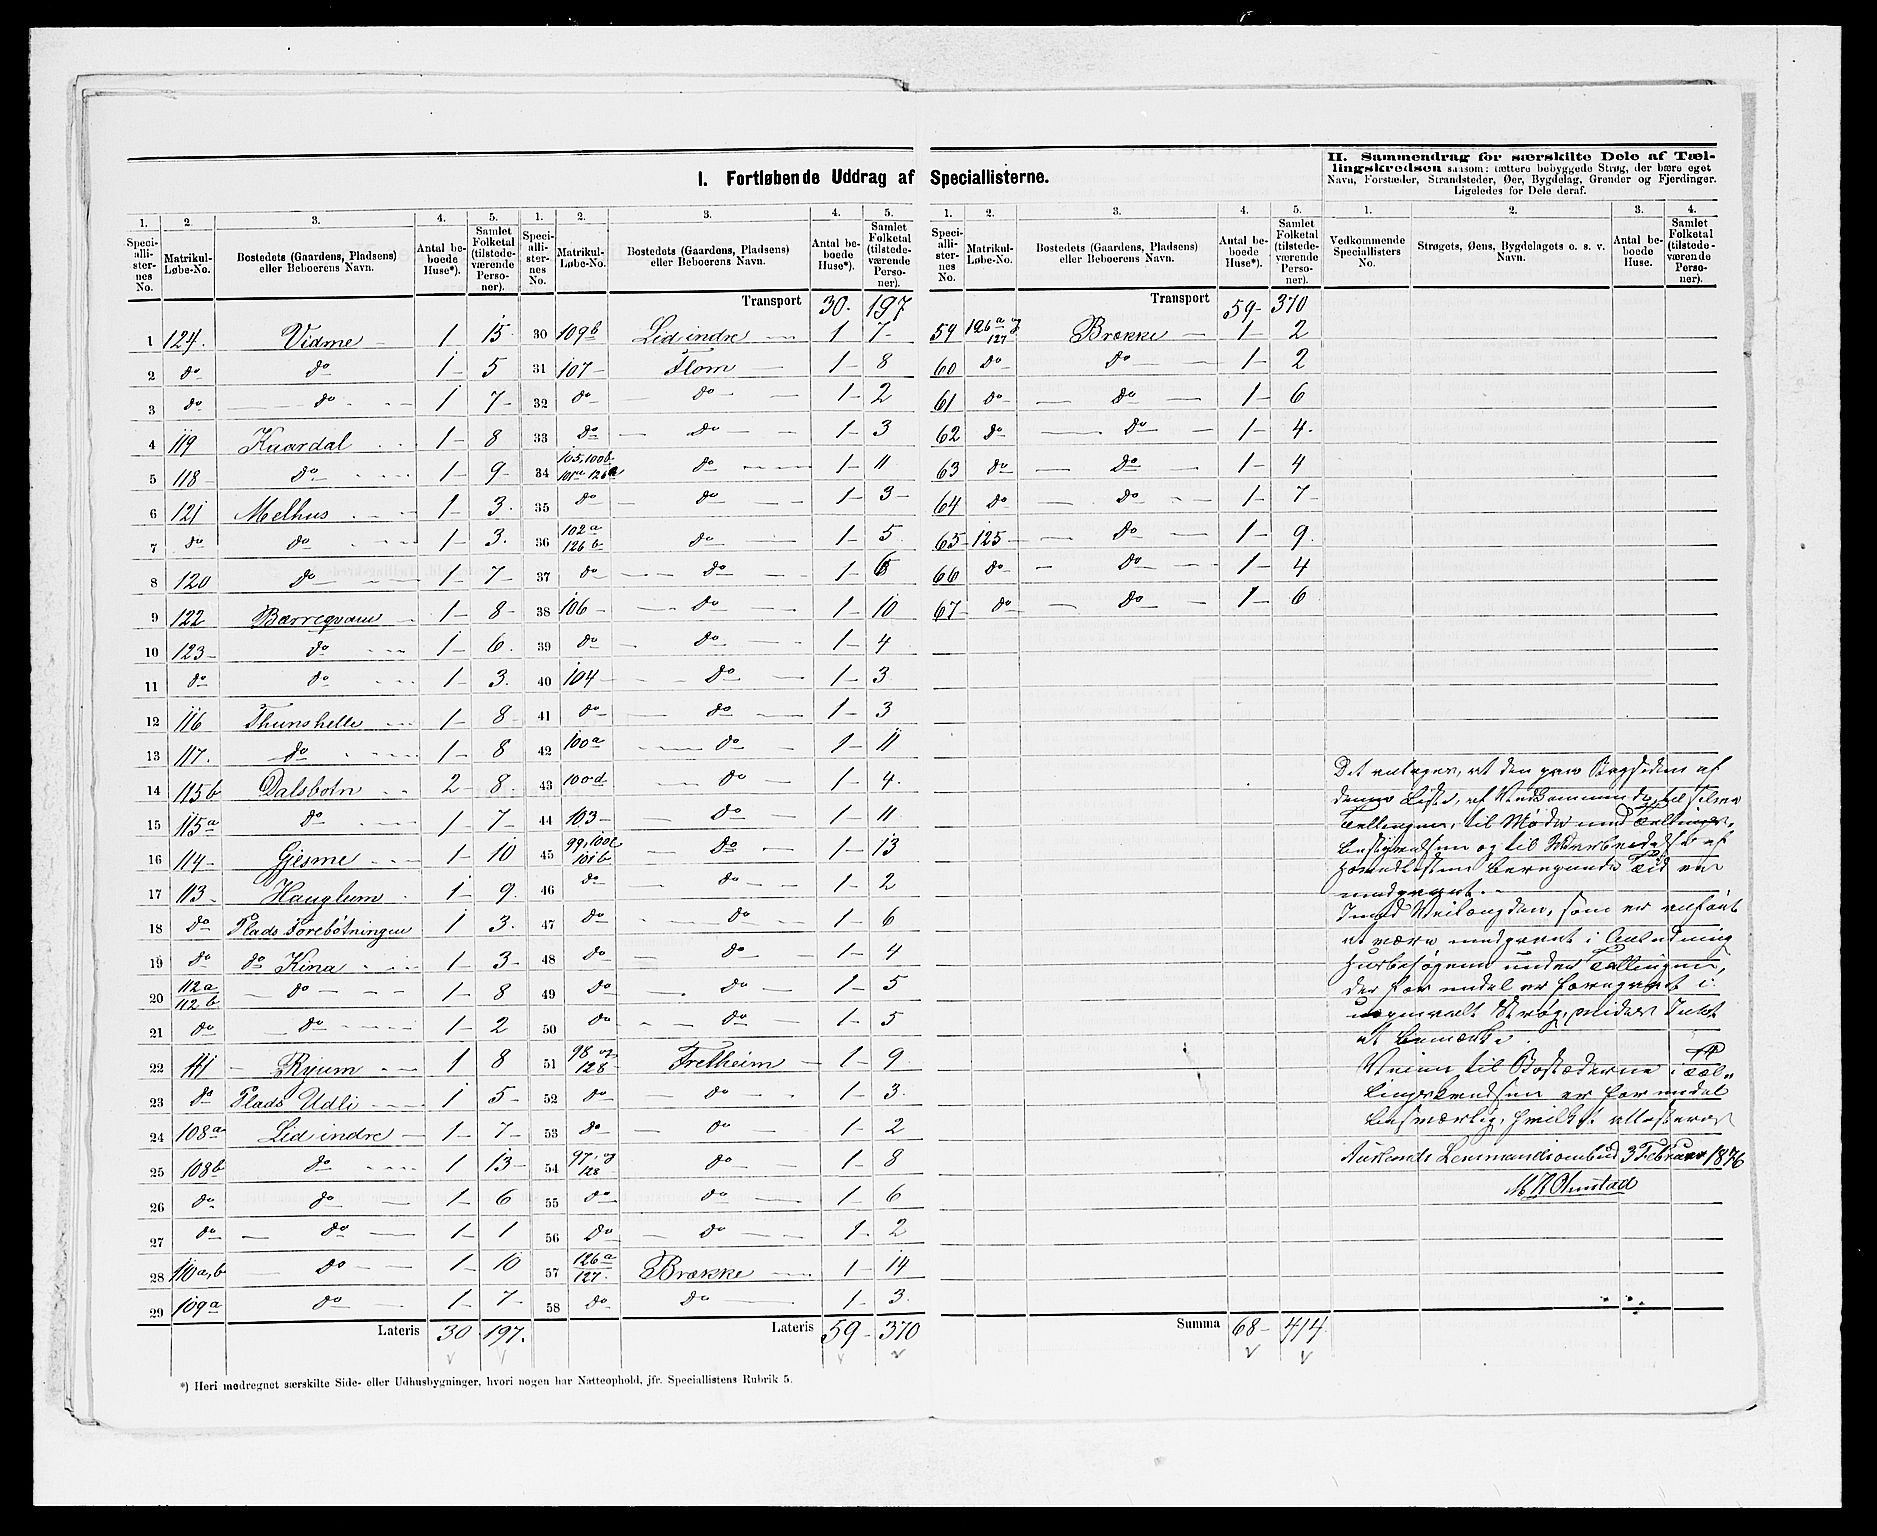 I. Fortløbende Uddrag af Speciallisterne.
II. Sammendrag for særskilte Dele af Tæl-
lingskredsen saasom: tættere bebyggede Strøg, der bære eget
Navn, Forstæder, Strandsteder, Øer, Bygdelag, Grender og Fjerdinger.
Ligeledes for Dele deraf.
1. 2. 3. 4. 5.
Speciallisternes No. Matrikul-Løbe-No. Bostedets (Gaardens, Pladsens) eller Beboerens Navn. Antal beboede Huse*). Samlet Folketal (tilstedeværende Personer).
1 124. Vidme 1 15
2 do do 1 5
3 do do 1 7
4 119 Kaardal 1 8
5 118 do 1 9
6 121 Melhus 1 3
7 do do 1 3
8 120 do 1 7
9 122 Bærreqvam 1 8
10 123 do 1 6
11 do do 1 3
12 116 Thunshelle 1 8
13 117. do 1 8
14 115b Dalsbotn 2 8
15 115a do 1 7
16 114 Gjesme 1 10
17 113 Hauglum 1 9
18 do Plads Førebøtningen 1 3
19 do do Kina 1 3
20 112a 112b do 1 8
21 do do 1 2
22 111 Ryum 1 8
23 do Plads Udli 1 5
24 108a Lid indre 1 7
25 108b do 1 13
26 do do 1 6
27 do do 1 1
28 110a,b do 1 10
29 109a do 1 7
Lateris 30 197.
1. 2. 3. 4. 5.
Speciallisternes No. Matrikul-Løbe-No. Bostedets (Gaardens, Pladsens) eller Beboerens Navn. Antal beboede Huse*). Samlet Folketal (tilstedeværende Personer).
Transport 30. 197
30 109b Lid indre 1 7
31 107 Flom 1 8
32 do do 1 2
33 do do 1 3
34 105, 100b 101a 126a do 1 11
35 do do 1 3
36 102a 126b do 1 5
37 do do 1 6
38 106 do 1 10
39 do do 1 4
40 104 do 1 3
41 do do 1 3
42 100a do 1 11
43 100d do 1 4
44 103 do 1 11
45 99, 100c 101b do 1 13
46 do do 1 2
47 do do 1 6
48 do do 1 4
49 do do 1 5
50 do do 1 5
51 98 og 128 Fretheim 1 9
52 do do 1 3
53 do do 1 2
54 97, og 128 do 1 8
55 do do 1 6
56 do do 1 2
57 126a 127. Brække 1 14
58 do do 1 3
Lateris 59 370
1. 2. 3. 4. 5.
Speciallisternes No. Matrikul-Løbe-No. Bostedets (Gaardens, Pladsens) eller Beboerens Navn. Antal beboede Huse*). Samlet Folketal (tilstedeværende Personer).
Transport 59 370
59 126a og 127 Brække 1 2
60 do do 1 2
61 do do 1 6
62 do do 1 4
63 do do 1 4
64 do do 1 7
65 125 do 1 9
66 do do 1 4
67 do do 1 6
Summa 68 414
1. 2. 3. 4.
Vedkommende Speciallisters No. Strøgets, Øens, Bygdelagets o. s. v. Navn. Antal beboede Huse. Samlet Folketal (tilstedeværende Personer).
Det antages, at den paa Bagsiden af
denne Liste, af Vedkommende, til selve
Tællingen, til Møde med Tællings-
bestyrelsen og til Udarbeidelse af
Hovedlisten beregnede Tid er
medgaaet.
Imod Veilængden, som er anført
at være medgaaet i Anledning
Husbesøgene under Tællingen,
der for endel er foregaaet i
Strøg, vides Intet
at bemærke.
Veien til Bostederne i Tæl-
lingskredsen er for endel
besværlig, hvilket attesteres
Aurlands Lensmandsombud 3 Februar 1876
*) Heri medregnet særskilte Side- eller Udhusbygninger, hvori nogen har Natteophold, jfr. Speciallistens Rubrik 5.